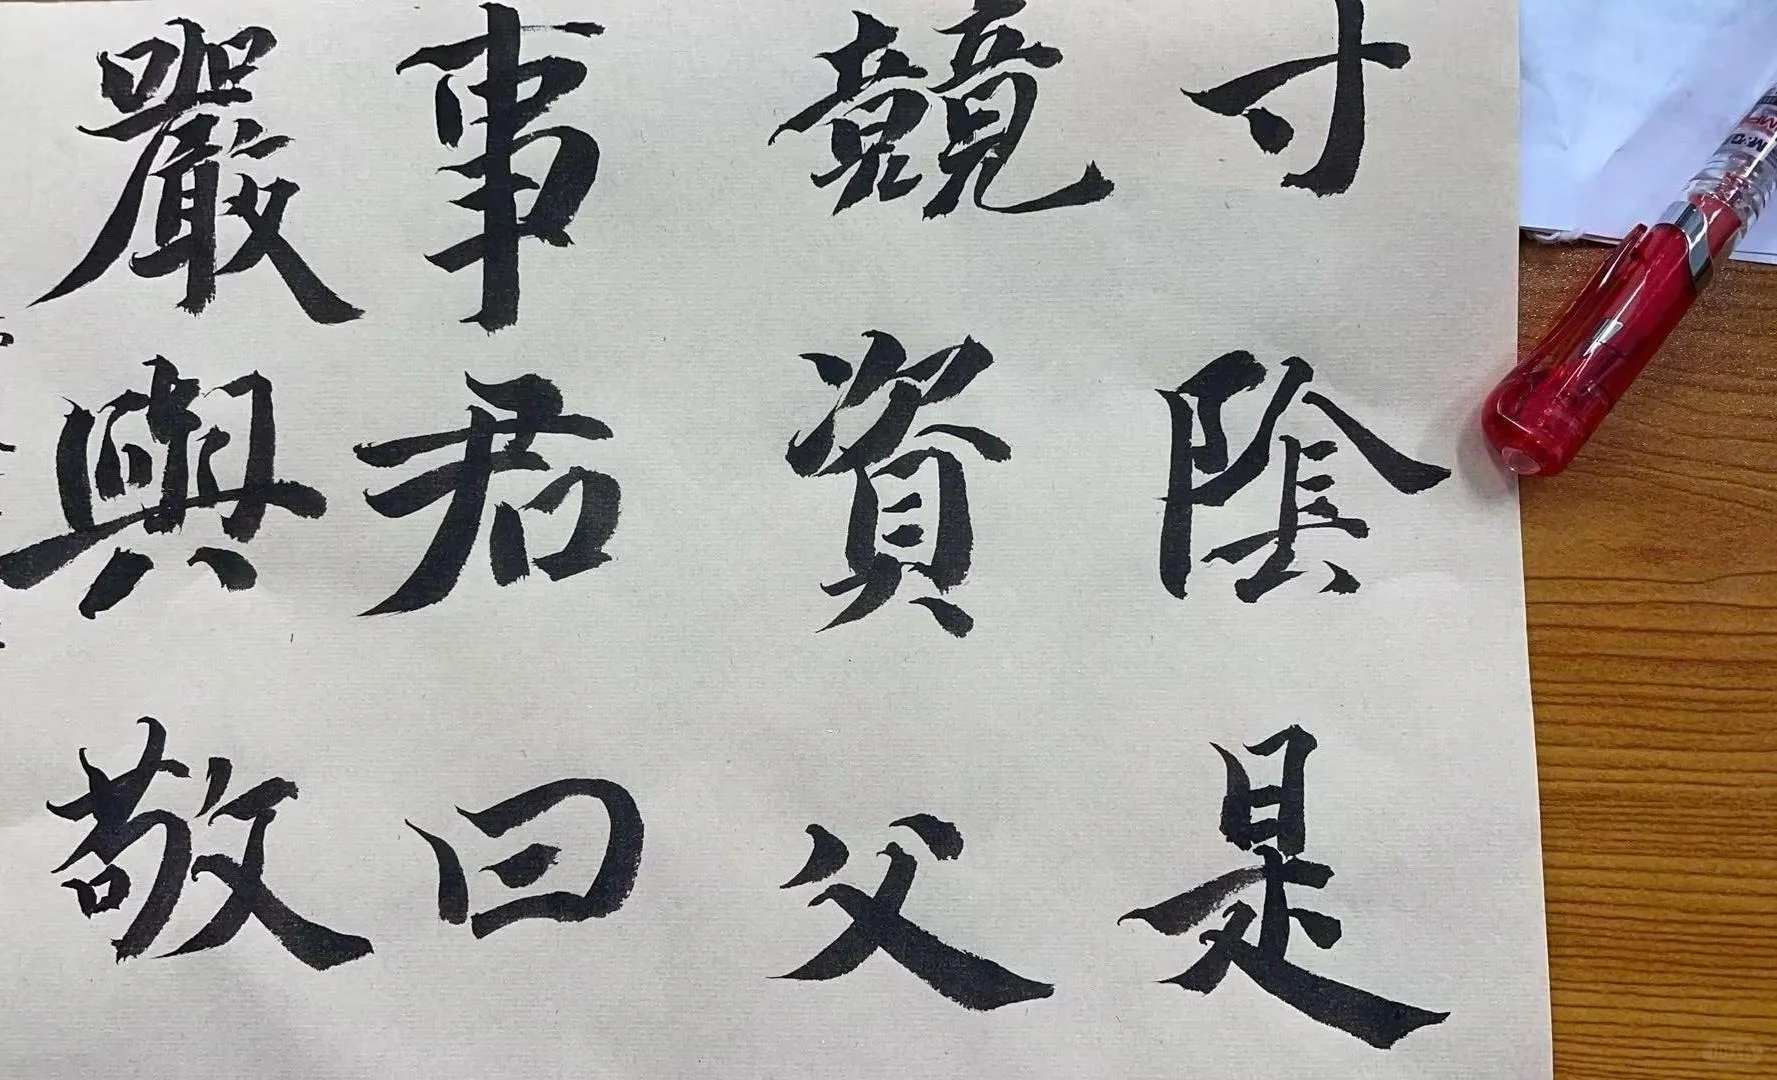 寸陰是
競資父
事君曰
嚴與敬